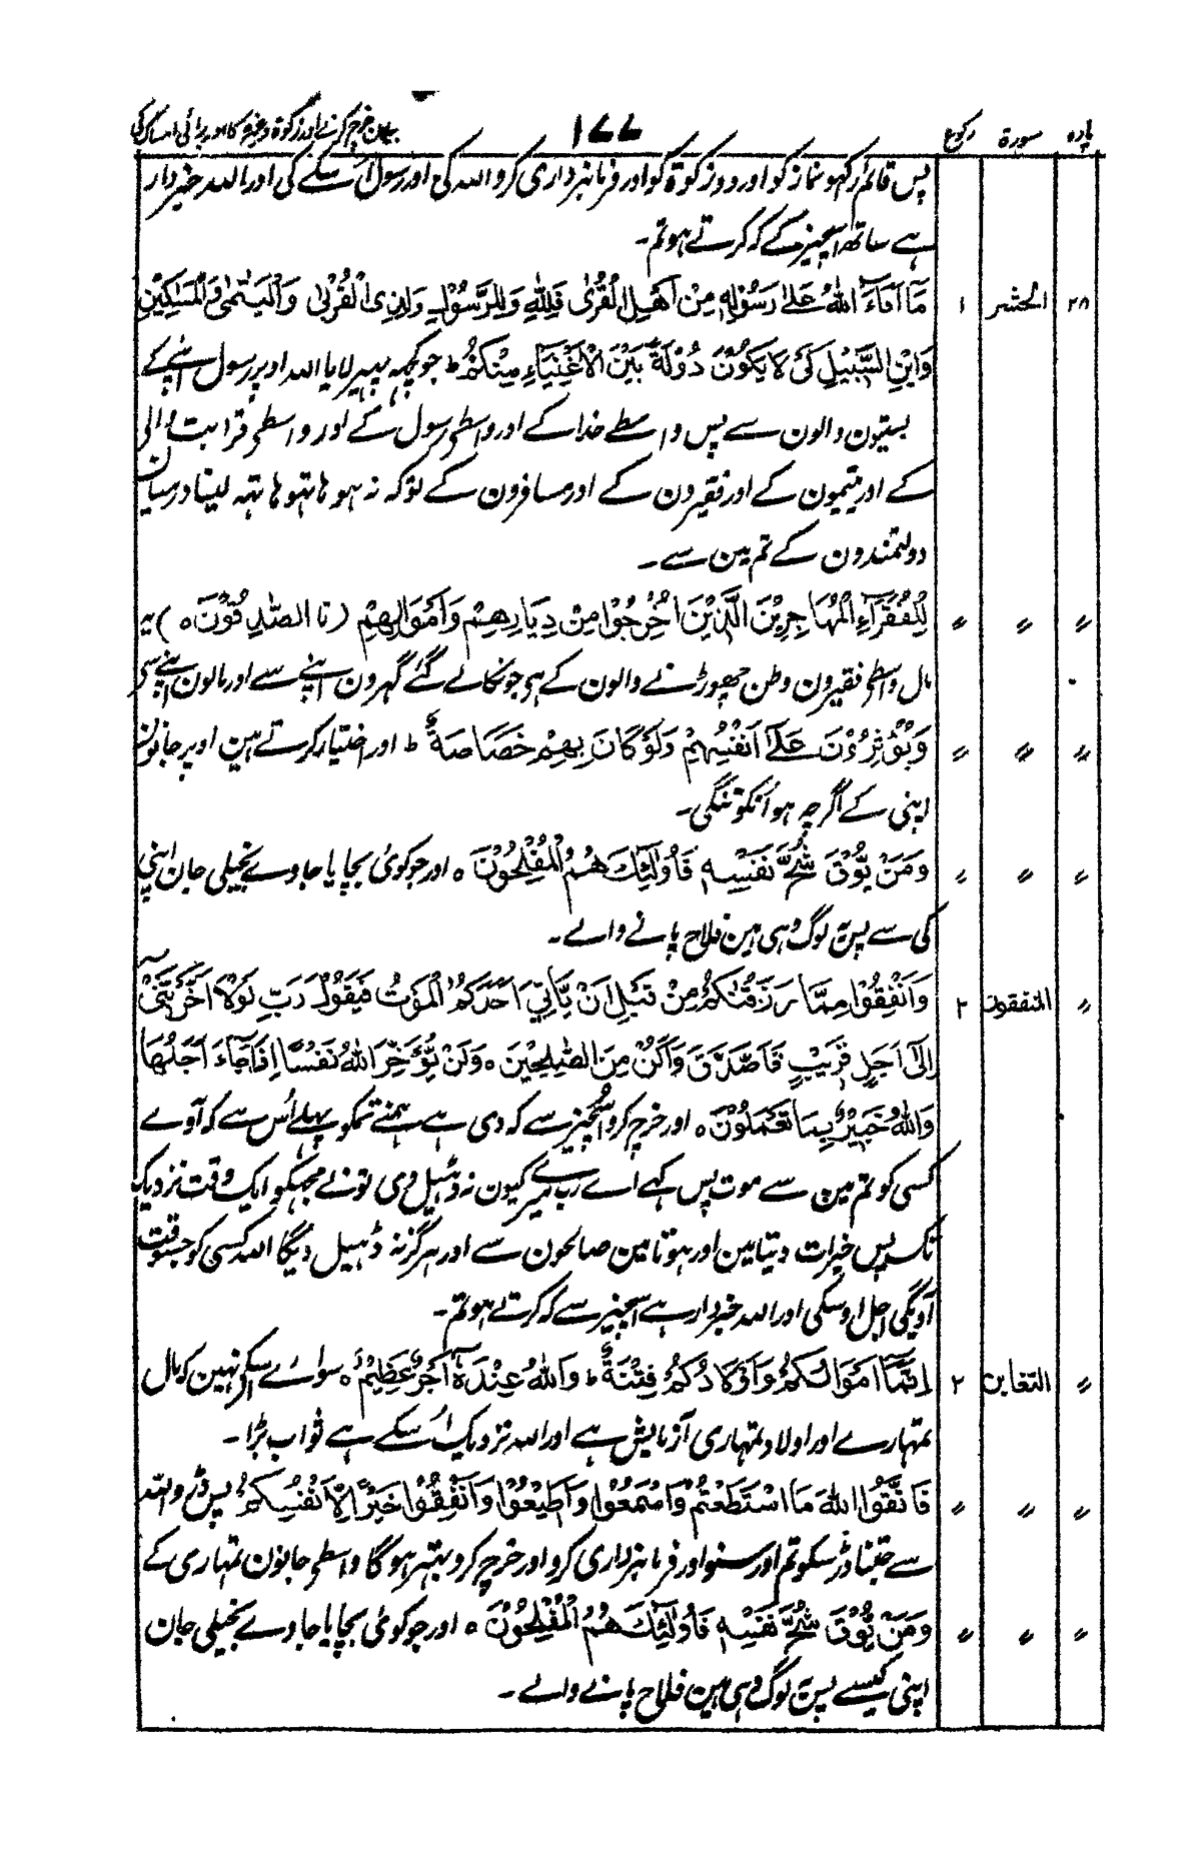 پارہ سورۃ رکوع ۱۷۷ بیان خرچ کرنے اور زکوٰۃ وغیرہ کا اور برائی امساک کی
پس قائم رکھو نماز کو اور دو زکوٰۃ کو اور فرمانبرداری کرو اللہ کی اور رسول اسکے کی اور اللہ خبردار
ہے ساتھ اسچیز کے کہ کرتے ہو تم۔
۲۸ الحشر ۱ مَآ اَفَآءَ اللّٰهُ عَلٰی رَسُوْلِهٖ مِنْ اَهْلِ الْقُرٰی فَلِلّٰهِ وَلِلرَّسُوْلِ وَلِذِی الْقُرْبٰی وَالْیَتٰمٰی وَالْمَسٰکِیْنِ
وَابْنِ السَّبِیْلِ کَیْ لَا یَکُوْنَ دُوْلَةً بَیْنَ الْاَغْنِیَآءِ مِنْکُمْ ط جو کچھ پہیر لایا اللہ اوپر رسول اپنے کے
بستیون والون سے پس واسطے خدا کے اور واسطے رسول کے اور واسطے قرابت والی
کے اور یتیمون کے اور فقیرون کے اور مسافرون کے توکہ نہ ہو ہاتہو ہاتہہ لینا درمیان
دولتمندون کے تم مین سے۔
〃 〃 〃 لِلْفُقَرَآءِ الْمُهَاجِرِیْنَ الَّذِیْنَ اُخْرِجُوْا مِنْ دِیَارِهِمْ وَاَمْوَالِهِمْ (تا الصّٰدِقُوْنَ ہ) یہ
مال واسطے فقیرون وطن چھوڑنے والون کے ہی جو نکالے گئے گہرون اپنے سے اور مالون اپنے سے
〃 〃 〃 وَیُؤْثِرُوْنَ عَلٰٓی اَنْفُسِهِمْ وَلَوْ کَانَ بِهِمْ خَصَاصَةٌ ط اور اختیار کرتے ہین اوپر جانون
اپنی کے اگرچہ ہو اُنکو تنگی۔
〃 〃 〃 وَمَنْ یُّوْقَ شُحَّ نَفْسِهٖ فَاُولٰٓئِكَ هُمُ الْمُفْلِحُوْنَ ہ اور جو کوئی بچایا جاوے بخیلی جان اپنی
کی سے پس یہ لوگ وہی ہین فلاح پانے والے۔
〃 المنفقون ۲ وَاَنْفِقُوْا مِمَّا رَزَقْنٰکُمْ مِنْ قَبْلِ اَنْ یَّاْتِیَ اَحَدَکُمُ الْمَوْتُ فَیَقُوْلَ رَبِّ لَوْلَآ اَخَّرْتَنِیْٓ
اِلٰٓی اَجَلٍ قَرِیْبٍ فَاَصَّدَّقَ وَاَکُنْ مِنَ الصّٰلِحِیْنَ ہ وَلَنْ یُّؤَخِّرَ اللّٰهُ نَفْسًا اِذَا جَآءَ اَجَلُهَا
وَاللّٰهُ خَبِیْرٌۢ بِمَا تَعْمَلُوْنَ ہ اور خرچ کرو اُسچیز سے کہ دی ہے ہمنے تمکو پہلے اُس سے کہ آوے
کسی کو تم مین سے موت پس کہے اے رب میرے کیون نہ ڈہیل دی تونے مجہکو ایک وقت نزدیک
تک پس خیرات دیتا مین اور ہوتا مین صالحون سے اور ہرگز نہ ڈہیل دیگا اللہ کسی کو جسوقت
آویگی اجل اوسکی اور اللہ خبردار ہے اسچیز سے کہ کرتے ہو تم۔
〃 التغابن ۲ اِنَّمَآ اَمْوَالُکُمْ وَاَوْلَادُکُمْ فِتْنَةٌ ط وَاللّٰهُ عِنْدَهٗٓ اَجْرٌ عَظِیْمٌ ہ سوائے اسکے نہین کہ مال
تمہارے اور اولاد تمہاری آزمایش ہے اور اللہ نزدیک اُسکے ہے ثواب بڑا۔
〃 〃 〃 فَاتَّقُوا اللّٰهَ مَا اسْتَطَعْتُمْ وَاسْمَعُوْا وَاَطِیْعُوْا وَاَنْفِقُوْا خَیْرًا لِّاَنْفُسِکُمْ پس ڈرو اللہ
سے جتنا ڈر سکو تم اور سنو اور فرمانبرداری کرو اور خرچ کرو بہتر ہو گا واسطے جانون تمہاری کے
〃 〃 〃 وَمَنْ یُّوْقَ شُحَّ نَفْسِهٖ فَاُولٰٓئِكَ هُمُ الْمُفْلِحُوْنَ ہ اور جو کوئی بچایا جاوے بخیلی جان
اپنی کیسے پس یہ لوگ وہی ہین فلاح پانے والے۔